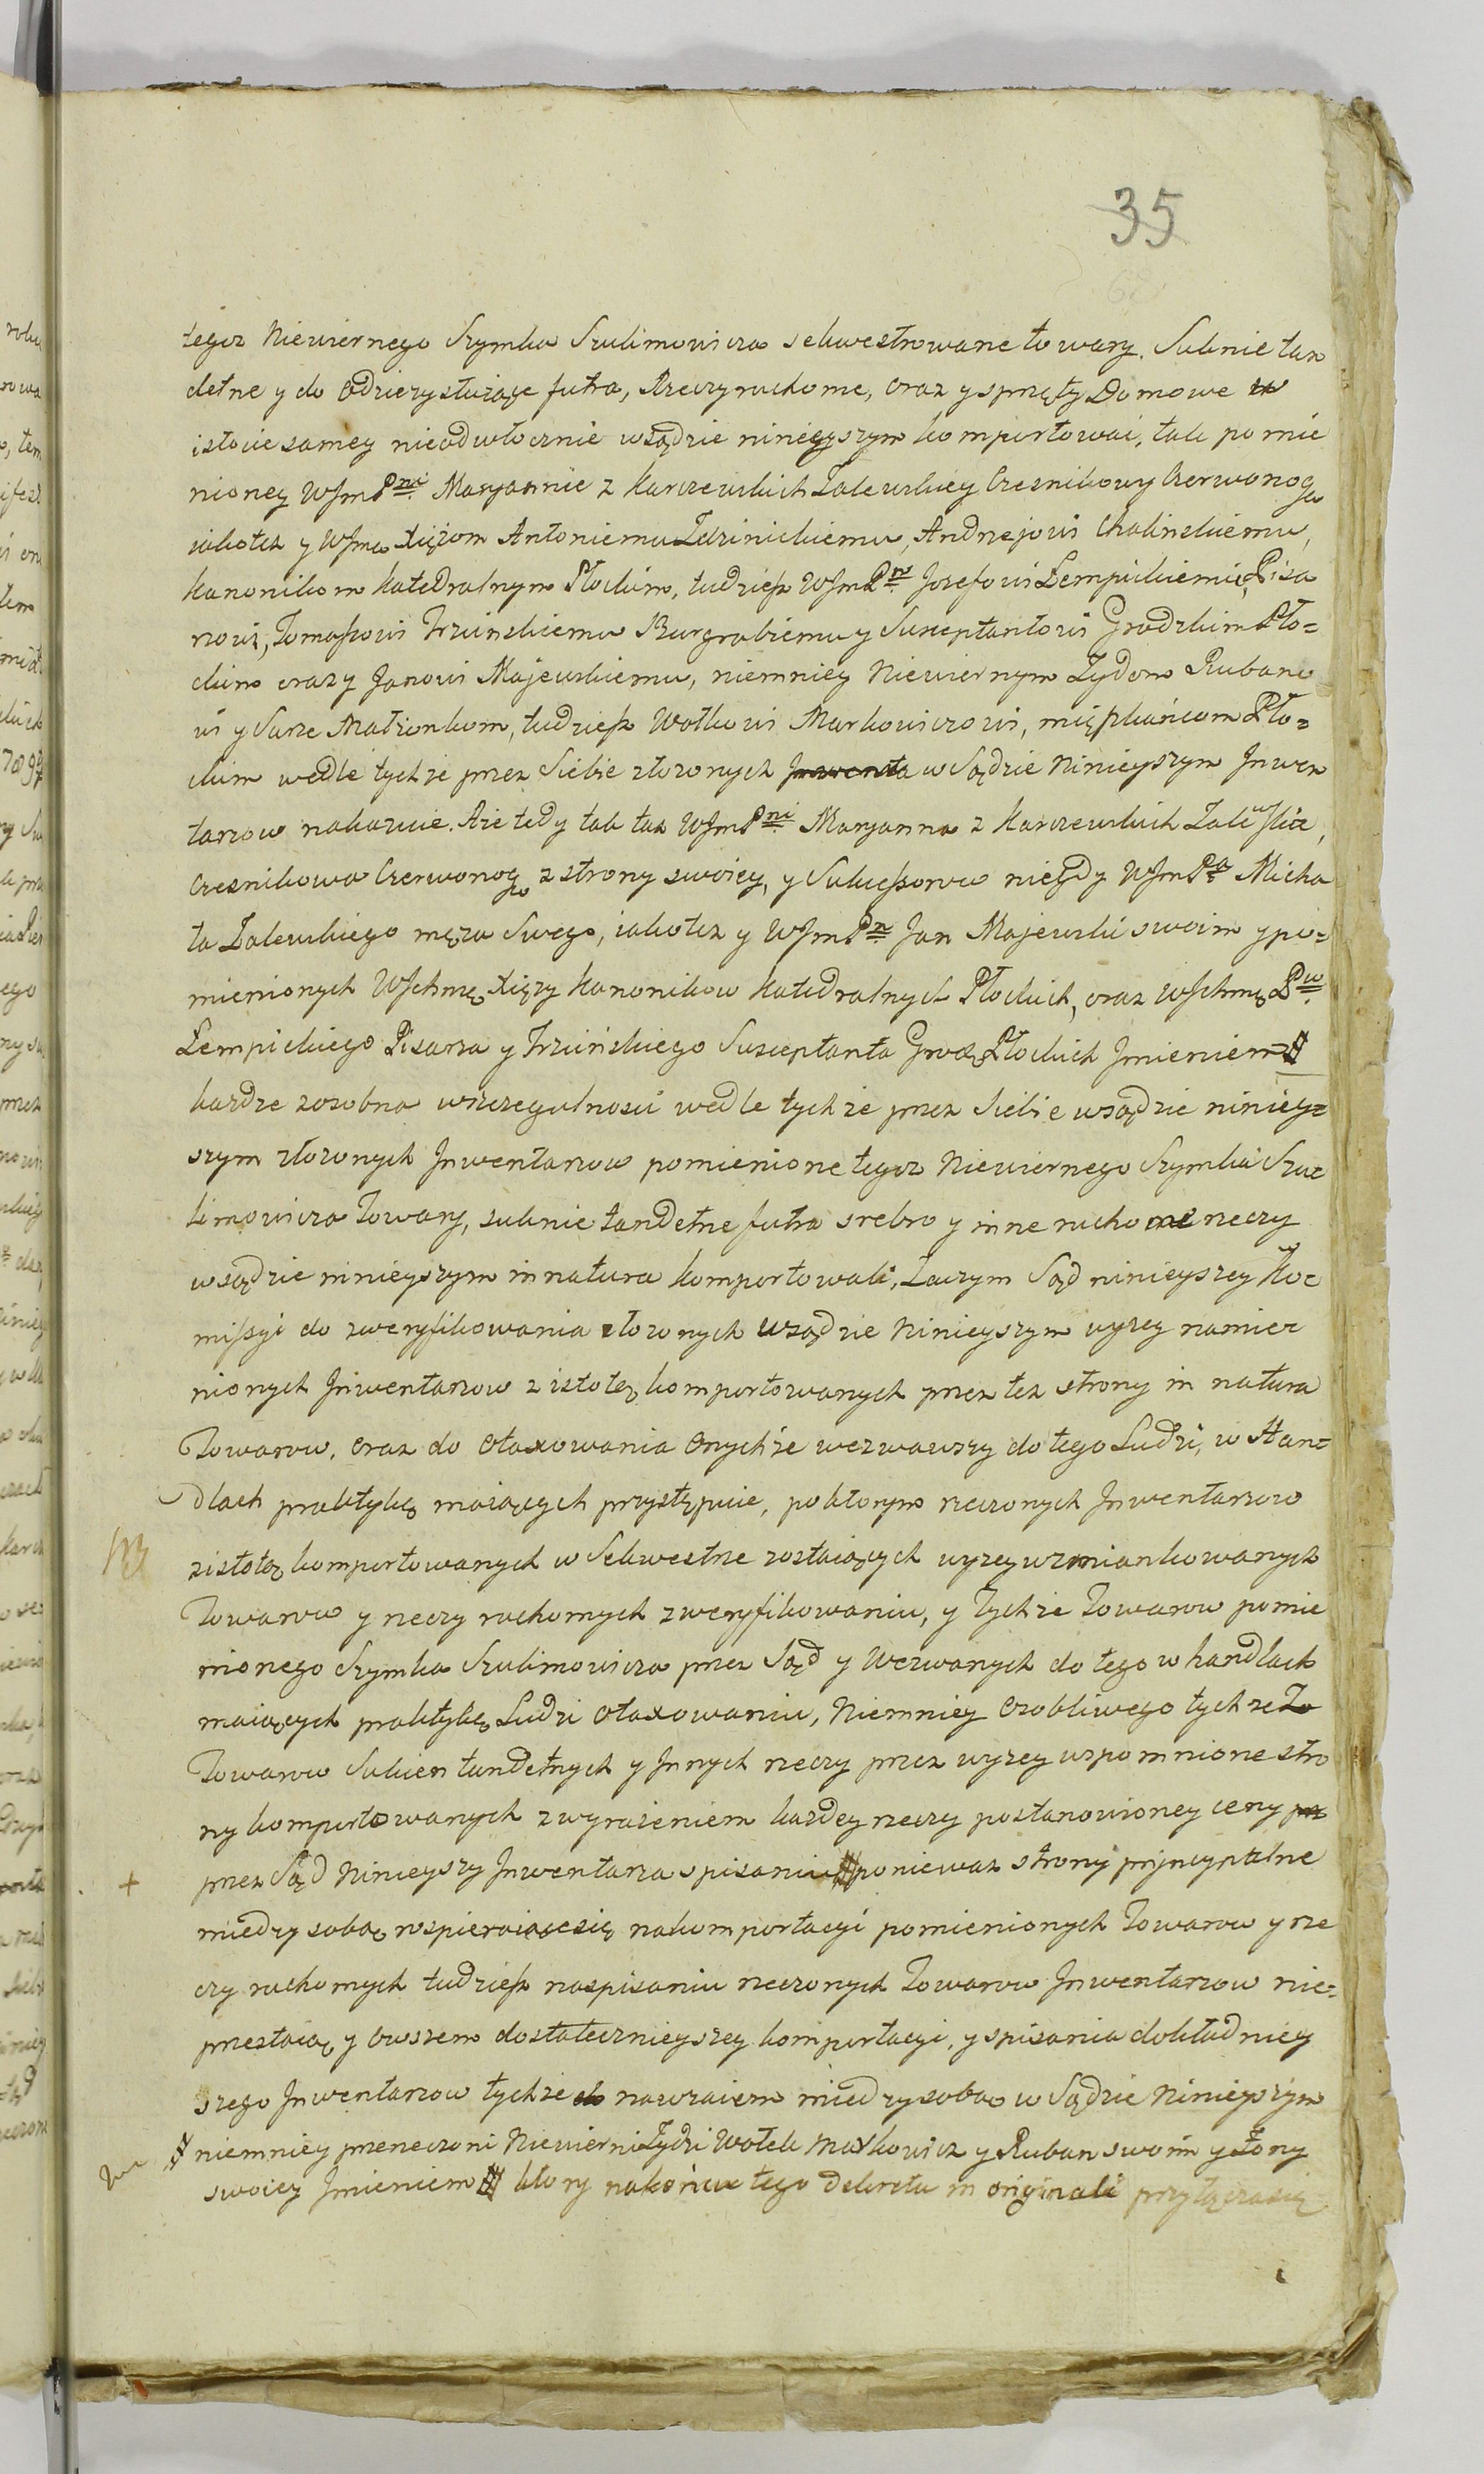 35
68
tegoz Niewiernego Szymka Szulimowicza sekwestrowane towary. Suknie tan
detne y do Odzieży służące futra, Rzeczy ruchome, oraz y sprzęty Domowe w
istocie samey nieodwłocznie w sądzie ninieyszym komportować, tak pomie
nioney WJmPni Maryannie z Karczewskich Zalewskiey Czesnikowy Czerwonog
iakotez y WJmx Xiężom Antoniemu Zdzinickiemu, Andrzejowi Chalinskiemu,
Kanonikom Katedralnym Płockim, tudzież WJmPnw Jozefowi Lempickiemu, Pisa
rzowi, Tomaszowi Trzinskiemu Burgrabiemu y Susceptantowi Grodzkim Pło=
ckim oraz y Janowi Majewskiemu, niemniey Niewiernym Żydom Rubano
wi y Surze Małżonkom, tudzież Wołkowi Markowiczowi, mięszkańcom Pło=
ckim wedle tychże przez Siebie złozonych Inwenta w Sądzie Ninieyszym Inwen
tarzow nakazuie. Aże tedy tak taz WJmPni Maryanna z Karczewskich Zalewska,
Czesnikowa Czerwonog z strony swoiey, y Sukceszorow niegdy WJmPa Micha
ła Zalewskiego męża Swego, iakotez y WJmPn Jan Majewski swoim y po=
mienionych WJchmę Xięży Kanonikow Katedralnych Płockich, oraz WJchmę Pw
Lempickiego Pisarza y Trzińskiego Susceptanta Grodz Płockich Jmieniem #
kazde zosobna wszczegulnosci wedle tychze przez Siebie w sądzie niniey=
szym złozonych Inwentarzow pomienione tegoz Niewiernego Szymka Szu=
limowicza Towary, suknie tandetne futra srebro y inne ruchome rzeczy
w sądzie ninieyszym in natura komportowali, Zaczym Sąd ninieyszey Ko=
mißyi do zweryfikowania złozonych w sądzie Ninieyszym wyzey namie=
nionych Inwentarzow z istotę komportowanych przez też strony in natura
Towarow, oraz do otaxowania Onychże wezwawszy do tego Ludzi, w Han=
dlach praktykę maiących przystępuie, po ktorym rzeczonych Inwentarzow
z istotę komportowanych w Sekwestrze zostaiących wyzey wzmiankowanych
Towarow y rzeczy ruchomych zweryfikowaniu, y Tychże Towarow pomie
nionego Szymka Szulimowicza przez Sąd y Wezwanych do tego w handlach
maiących praktykę Ludzi otaxowaniu, Niemniey Osobliwego tychże To
Towarow Sukien tandetnych y Innych rzeczy przez wyzey wspomnione stro
ny komportowanych z wyrazeniem kazdey rzeczy postanowioney ceny prz
+ przez Sąd Ninieyszy Inwentarza spisaniu # poniewaz strony pryncypalne
miedzy sobą rospieraiące się na komportacyi pomienionych Towarow y rze
czy ruchomych tudziesz na spisaniu rzeczonych Towarow Inwentarzow nie=
przestaią y owszem dostatecznieyszey komportacyi, y spisania dokładniey
szego Inwentarzow tychze do nawzaiem miedzy soba w Sądzie Ninieyszym
# niemniey przerzeczoni Niewierni Żydzi Wołek Markowicz y Ruban swoim y Żony
swoiey Jmieniem # ktory nakońcu tego Dekretu in originali przyłącza się